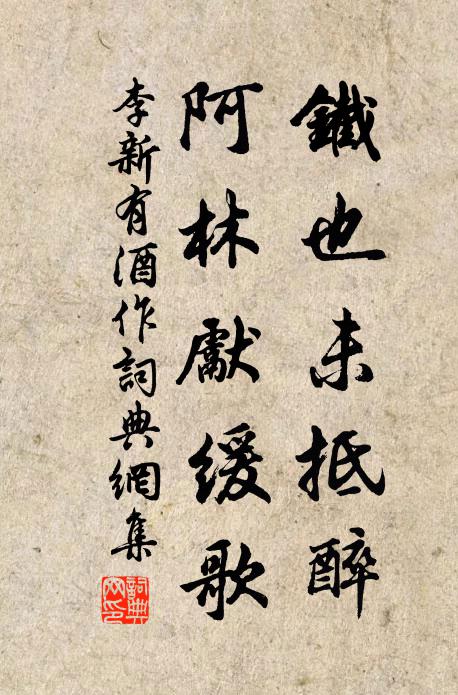 鐵也未抵醉
阿林獻緩歌
李新有酒作詞典網集
詞典網印